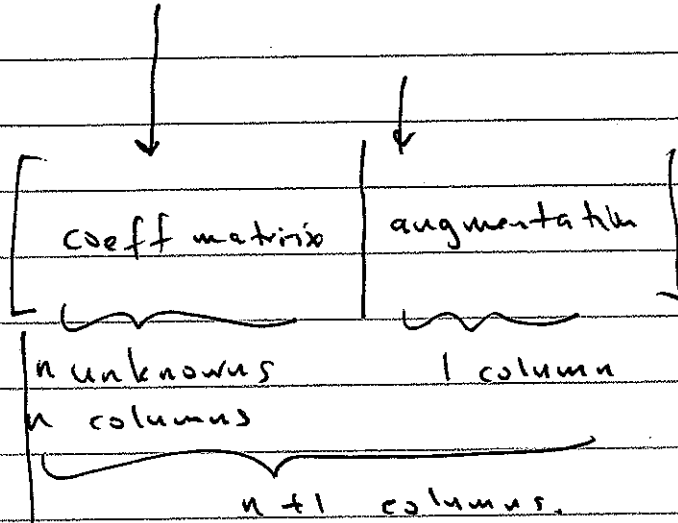 coeff matrix augmentation
n unknowns 1 column
n columns
n+1 columns.